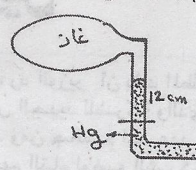 غاز
12 cm
Hg